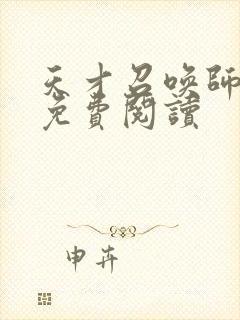 天才召喚師
免費閱讀
申卉